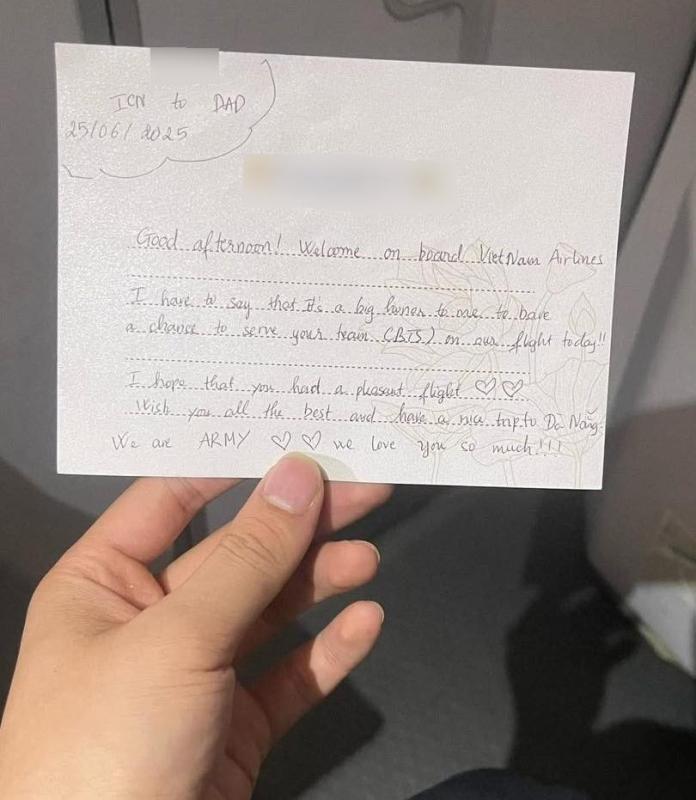 ICN to DAD
25/06/2025
Good afternoon! Welcome on board VietNam Airlines
I have to say that It's a big honor to me to have
a chance to serve your team (BTS) on our flight today!!
I hope that you had a pleasant flight ♡♡
Wish you all the best and have a nice trip to Đà Nẵng.
We are ARMY ♡♡ we love you so much!!!